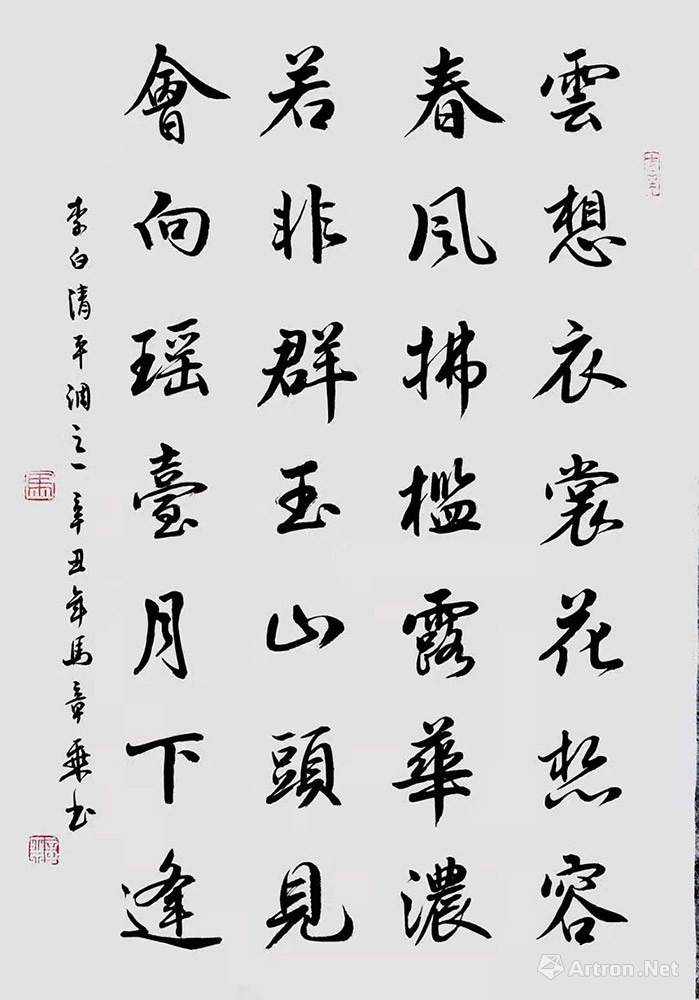 雲想衣裳花想容
春風拂檻露華濃
若非群玉山頭見
會向瑶臺月下逢
李白清平調之一辛丑年馬章乘书
馬
Artron.Net